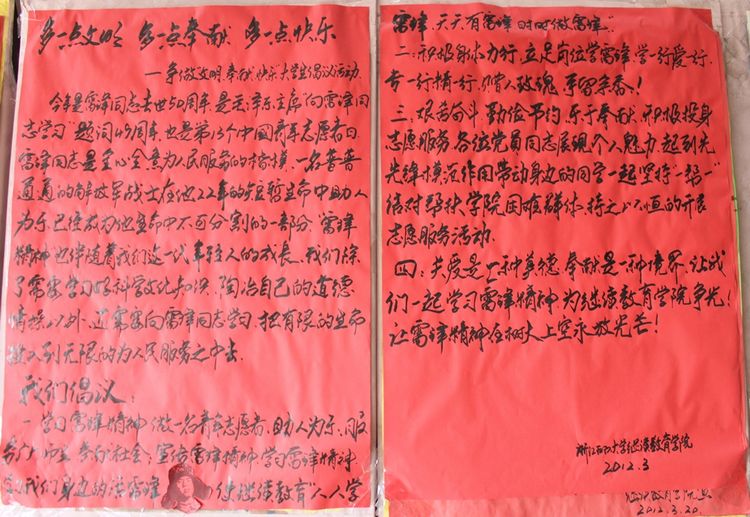 多一点文明 多一点奉献 多一点快乐
——争做文明奉献快乐大学生倡议活动
今年是雷锋同志去世50周年,是毛泽东主席"向雷锋同
志学习"题词49周年,也是第13个中国青年志愿者日
雷锋同志是全心全意为人民服务的楷模,一名普普
通通的解放军战士在他22年的短暂生命中助人
为乐已经成为他生命中不可分割的一部分,"雷锋
精神"也伴随着我们这一代年轻人的成长,我们除
了需要学习好科学文化知识,陶冶自己的道德
情操以外,还需要向雷锋同志学习,把有限的生命
投入到无限的为人民服务之中去.
我们倡议:
一.学习雷锋精神做一名青年志愿者,助人为乐,服
务 奉献社会;宣传雷锋精神学习雷锋精神
学习我们身边的活雷锋 使继续教育"人人学
雷锋 天天有雷锋 时时做雷锋".
二.积极身体力行,立足岗位学雷锋,学一行爱一行,
专一行精一行,赠人玫瑰,手留余香!
三.艰苦奋斗 勤俭节约,乐于奉献,积极投身
志愿服务,各位党员同志展现个人魅力,起到先
先锋模范作用带动身边的同学一起坚持"一帮一"
结对帮扶学院困难群体,持之以恒的开展
志愿服务活动.
四:关爱是一种美德,奉献是一种境界,让我
们一起学习雷锋精神,为继续教育学院争光!
让雷锋精神在树人上空永放光芒!
浙江树人大学继续教育学院
2012.3
继续教育学院
2012.3.20.